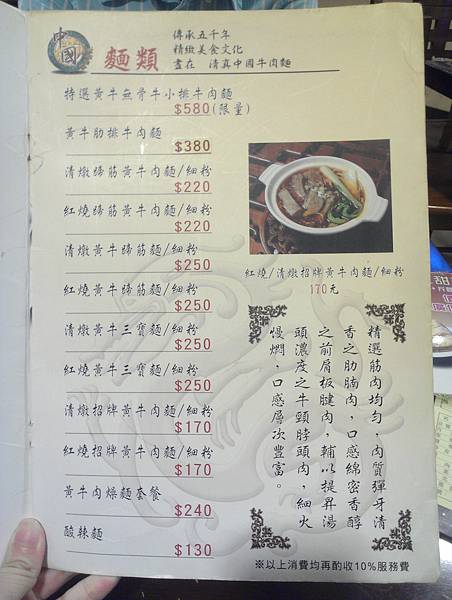 中國
麵類
傳承五千年
精緻美食文化
盡在 清真中國牛肉麵
特選黃牛無骨牛小排牛肉麵
$580(限量)
黃牛肋排牛肉麵
$380
清燉蹄筋黃牛肉麵/細粉
$220
紅燒蹄筋黃牛肉麵/細粉
$220
清燉黃牛蹄筋麵/細粉
$250
紅燒黃牛蹄筋麵/細粉
$250
清燉黃牛三寶麵/細粉
$250
紅燒黃牛三寶麵/細粉
$250
清燉招牌黃牛肉麵/細粉
$170
紅燒招牌黃牛肉麵/細粉
$170
黃牛肉燥麵套餐
$240
酸辣麵
$130
紅燒/清燉招牌黃牛肉麵/細粉
170元
精選筋肉均勻，肉質彈牙清
香之肋腩肉，口感綿密香醇
之前肩板腱肉，輔以提昇湯
頭濃度之牛頸脖頭肉，細火
慢燜，口感層次豐富。
※以上消費均再酌收10%服務費